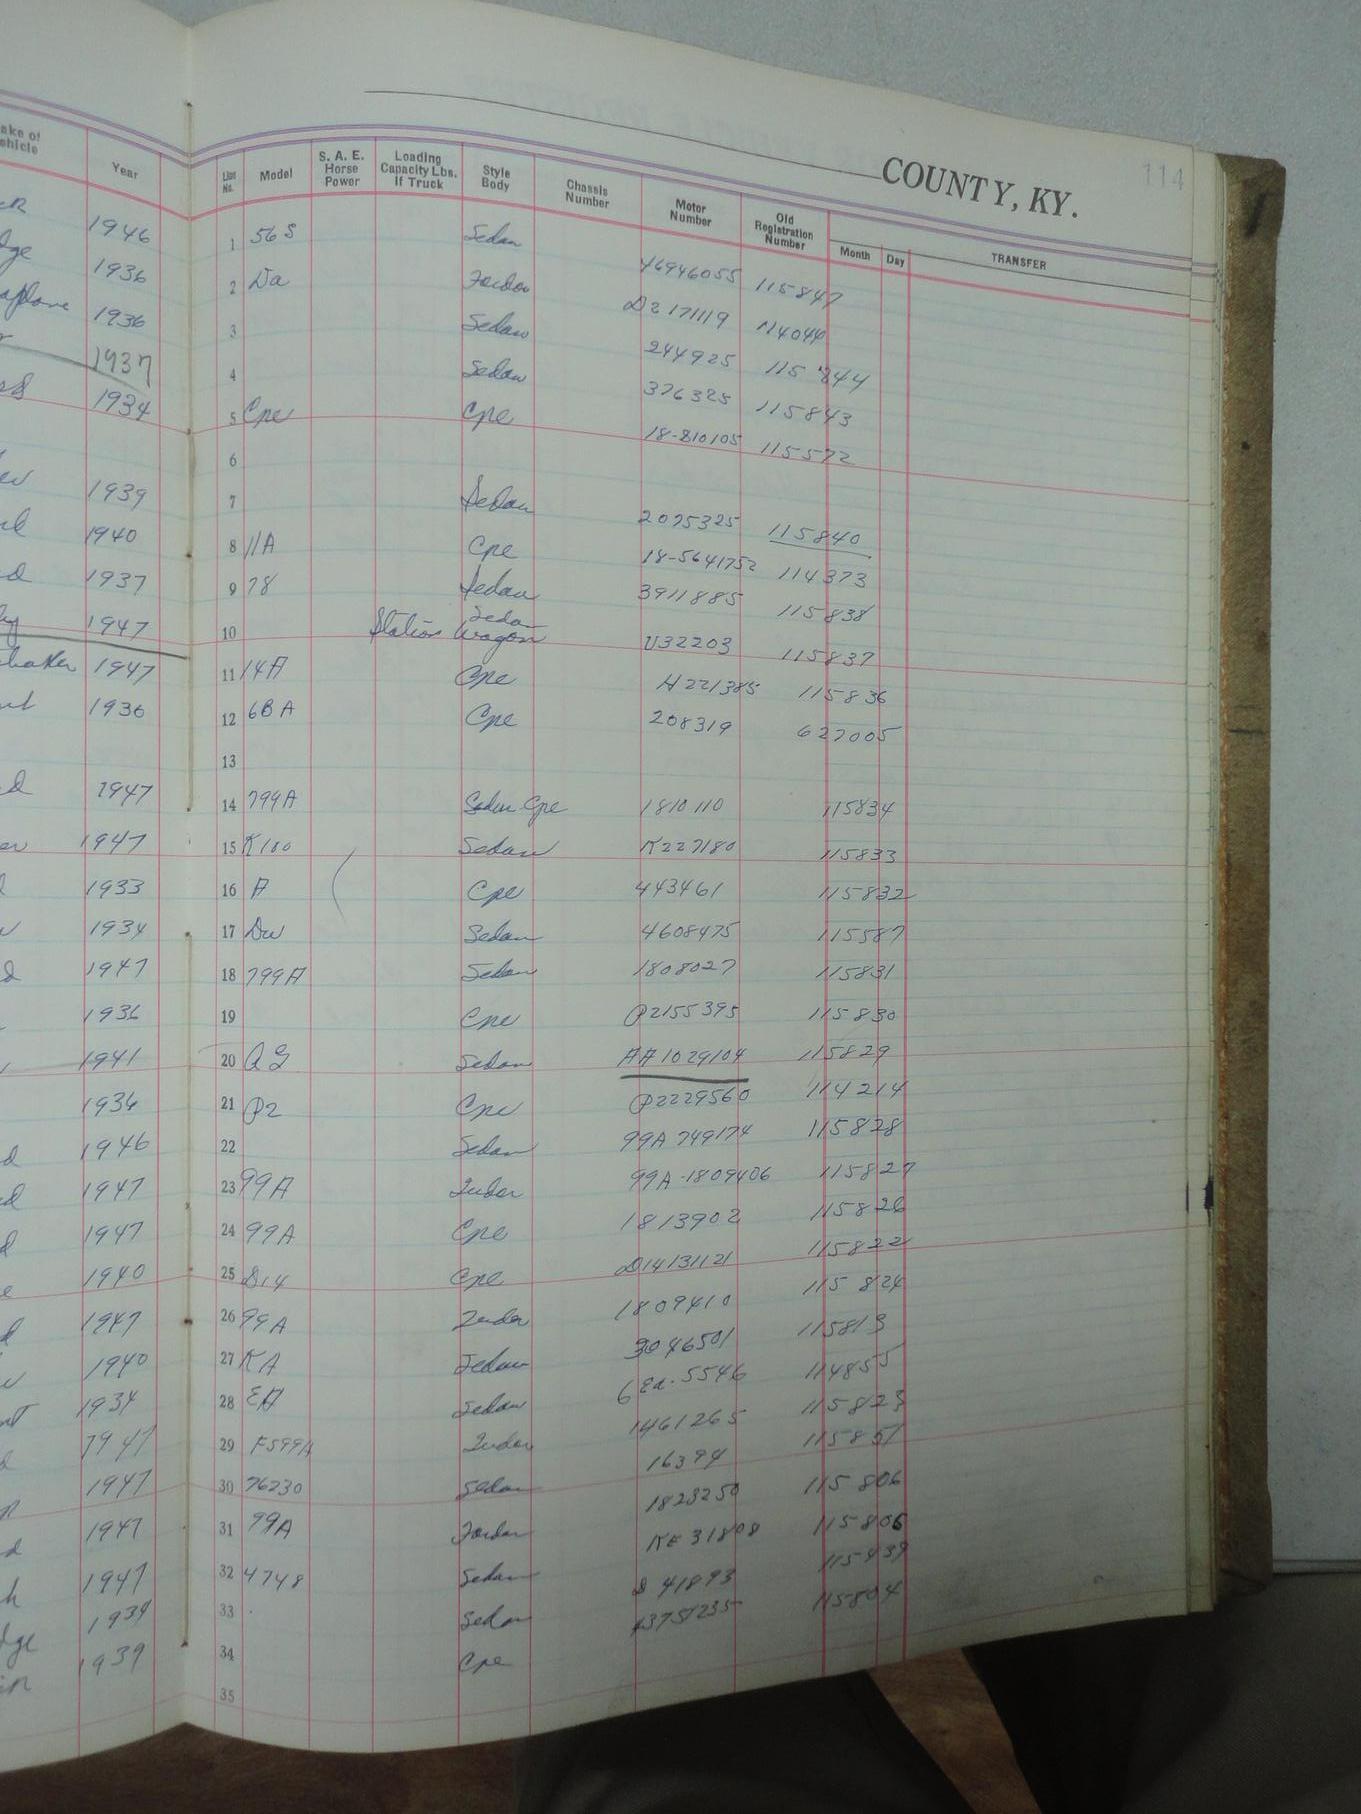 COUNTY, KY.
114
Year
Line No.
Model
S. A. E. Horse Power
Loading Capacity Lbs. If Truck
Style Body
Chassis Number
Motor Number
Old Registration Number
Month
Day
TRANSFER
1946 1 56 S Sedan 46946055 115847
1936 2 Fordor D2 171119
1936 3 Sedan 244925 115 844
1937 4 Sedan 376325 115843
1934 5 Cpe Cpe 18-810105 115572
6
1939 7 Sedan 2075325 115840
1940 8 11A Cpe 18-5641752 114373
1937 9 78 Sedan 3911885 115838
1947 10 Station Sedan Wagon U32203 115837
1947 11 14A Cpe H 221385 115836
1936 12 6BA Cpe 208319 627005
13
1947 14 799A Sedan Cpe 1810110 115834
1947 15 K100 Sedan K227180 115833
1933 16 A Cpe 443461 115832
1934 17 Sedan 4608475 115587
1947 18 799A Sedan 1808027 115831
1936 19 Cpe P2155395 115830
1941 20 Sedan AA1029104 115829
1936 21 P2 Cpe P2229560 114214
1946 22 Sedan 99A 749174 115828
1947 23 99A Tudor 99A-1809406 115827
1947 24 99A Cpe 1813902 115826
1940 25 D14 Cpe D14131121 115822
1947 26 99A Tudor 1809410 115 824
1940 27 KA Sedan 3046501 115813
1934 28 EA Sedan 6 Ea. 5546 114855
1947 29 F599A Tudor 1461265 115823
1947 30 76230 Sedan 16394 115851
1947 31 99A Fordor 1823250 115 806
1947 32 4748 Sedan KE 31808 115806
1934 33 Sedan D 41893 115439
1939 34 Cpe 115804
35